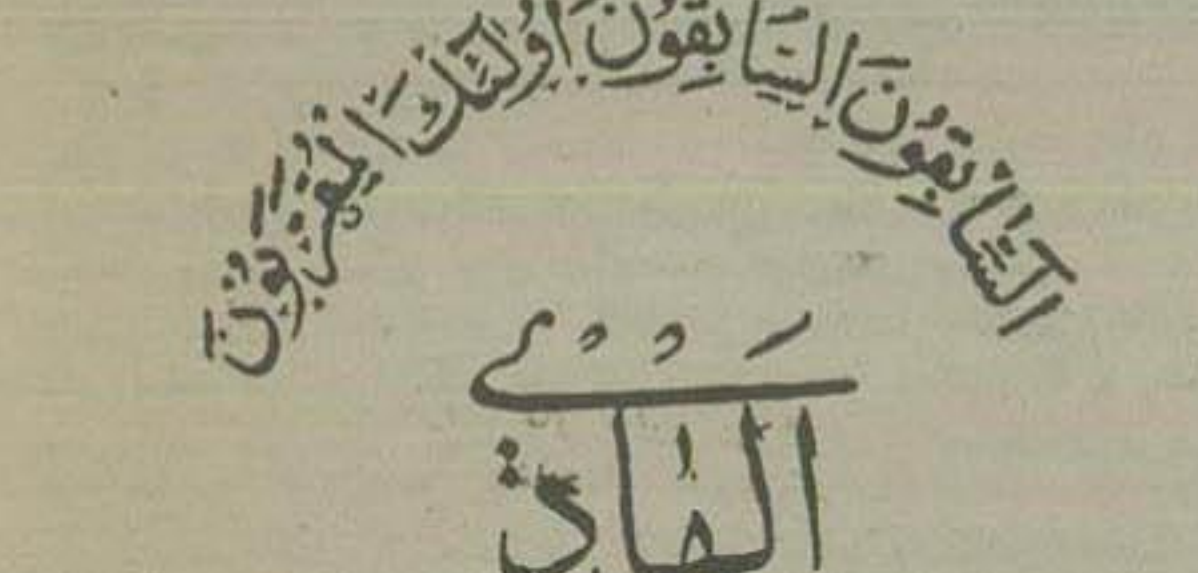 السَّابِقُونَ السَّابِقُونَ أُولَئِكَ الْمُقَرَّبُونَ